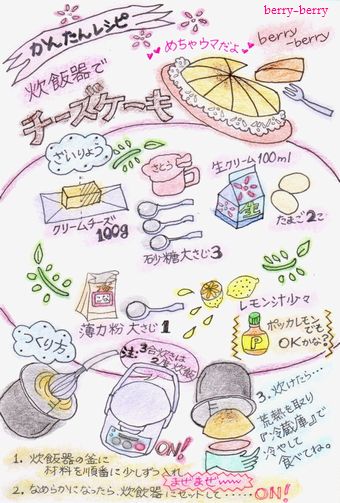 berry-berry
かんたんレシピ
めちゃウマだよ
berry
-berry
炊飯器で
チーズケーキ
ざいりょう
さとう
生クリーム100ml
生
クリームチーズ
100g
たまご2こ
砂糖大さじ3
レモン汁少々
こな
薄力粉 大さじ1
ポッカレモン
でも
OKかな?
P
つくり方
注:3合炊きは
2度炊飯
ON!
3. 炊けたら…
荒熱を取り
『冷蔵庫』で
冷やして
食べてね。
1. 炊飯器の釜に
材料を順番に少しずつ入れ
まぜまぜ
2. なめらかになったら、炊飯器にセットして・・・・・ON!